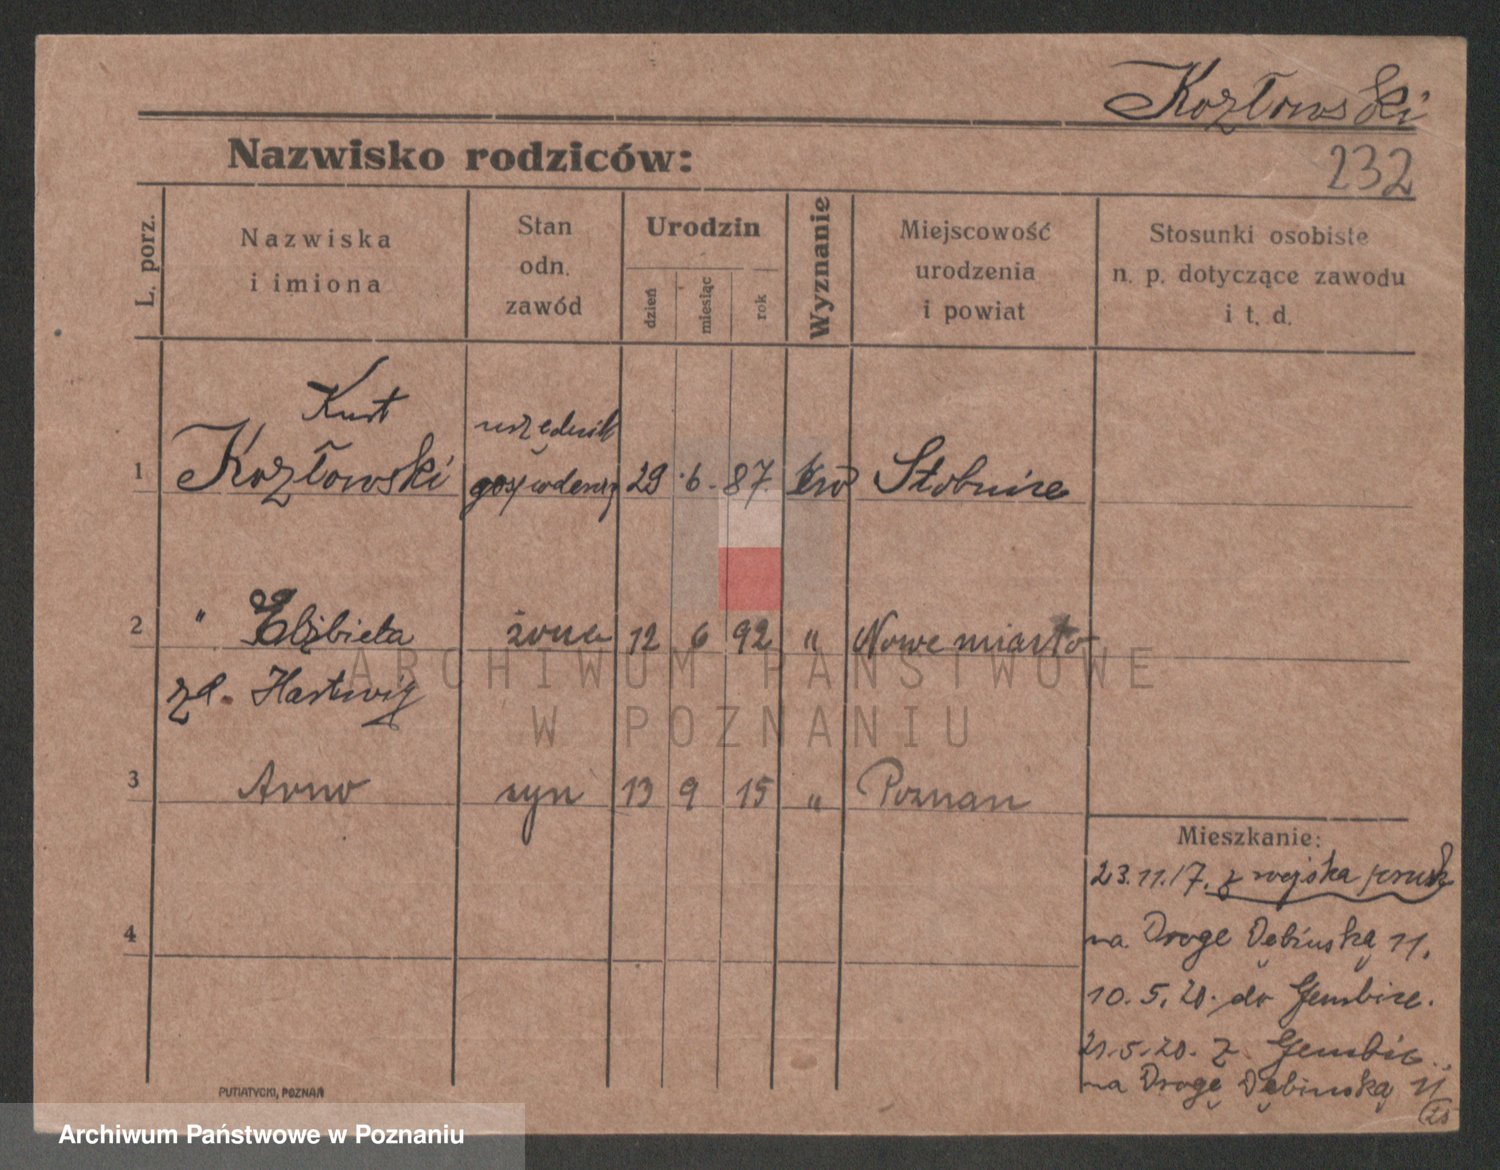 Kozłowski
232
Nazwisko rodziców:
L. porz.
Nazwiska
i imiona
Stan
odn.
zawód
Urodzin
dzień
miesiąc
rok
Wyznanie
Miejscowość
urodzenia
i powiat
Stosunki osobiste
n. p. dotyczące zawodu
i t. d.
Kurt
urzędnik
1 Kozłowski 29 6. 87. Stobnica
2 " Elżbieta żona 12 6 92 " Nowe miasto
zd. Hartwig
3 Arno syn 13 9 15 " Poznan
Mieszkanie:
23.11.17. z wojska prusk
na Drogę Dębińską 11.
4
10.5.20. do Gembice.
21.5.20. z Gembic..
na Drogę Dębińską 11
25
PUTIATYCKI, POZNAŃ
ARCHIWUM PAŃSTWOWE
W POZNANIU
Archiwum Państwowe w Poznaniu